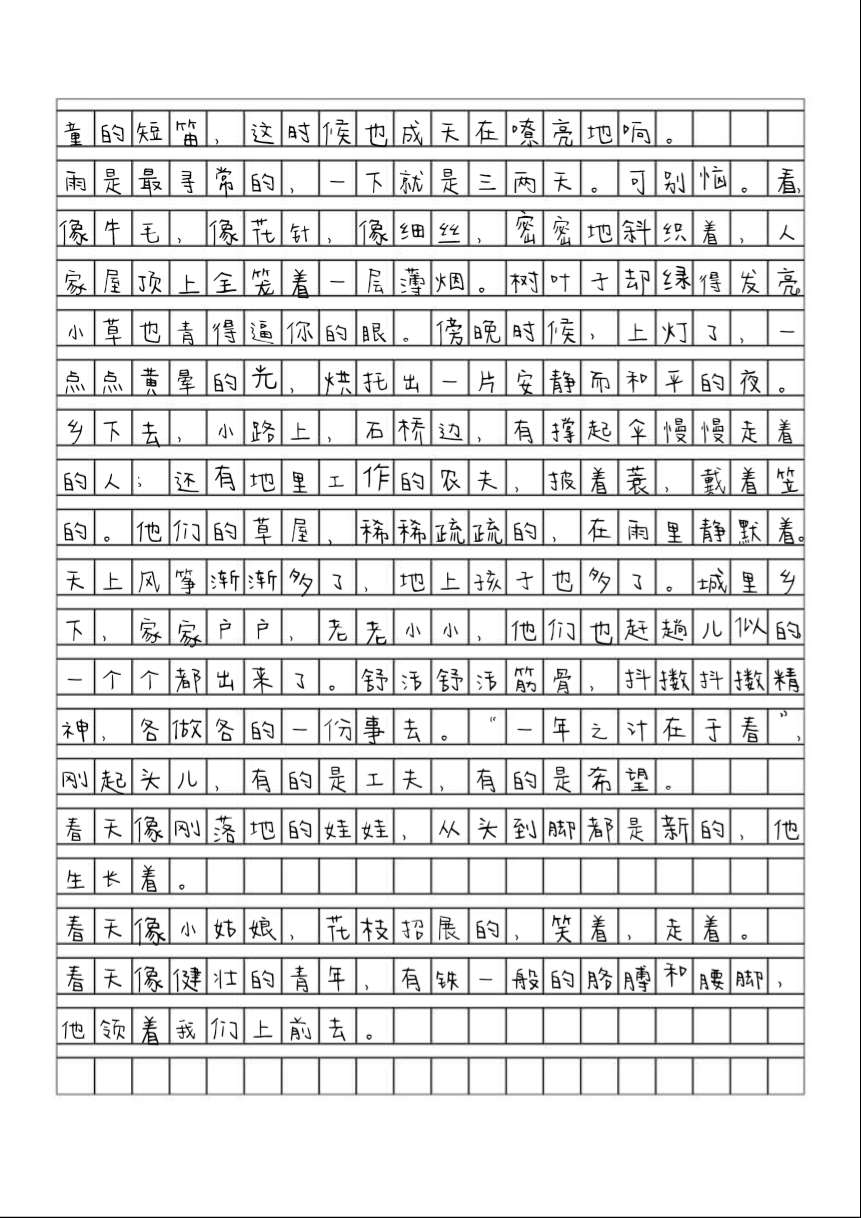 童的短笛，这时候也成天在嘹亮地响。
雨是最寻常的，一下就是三两天。可别恼。看，
像牛毛，像花针，像细丝，密密地斜织着，人
家屋顶上全笼着一层薄烟。树叶子却绿得发亮
小草也青得逼你的眼。傍晚时候，上灯了，一
点点黄晕的光，烘托出一片安静而和平的夜。
乡下去，小路上，石桥边，有撑起伞慢慢走着
的人；还有地里工作的农夫，披着蓑，戴着笠
的。他们的草屋，稀稀疏疏的，在雨里静默着。
天上风筝渐渐多了，地上孩子也多了。城里乡
下，家家户户，老老小小，他们也赶趟儿似的
一个个都出来了。舒活舒活筋骨，抖擞抖擞精
神，各做各的一份事去。“一年之计在于春”，
刚起头儿，有的是工夫，有的是希望。
春天像刚落地的娃娃，从头到脚都是新的，他
生长着。
春天像小姑娘，花枝招展的，笑着，走着。
春天像健壮的青年，有铁一般的胳膊和腰脚，
他领着我们上前去。